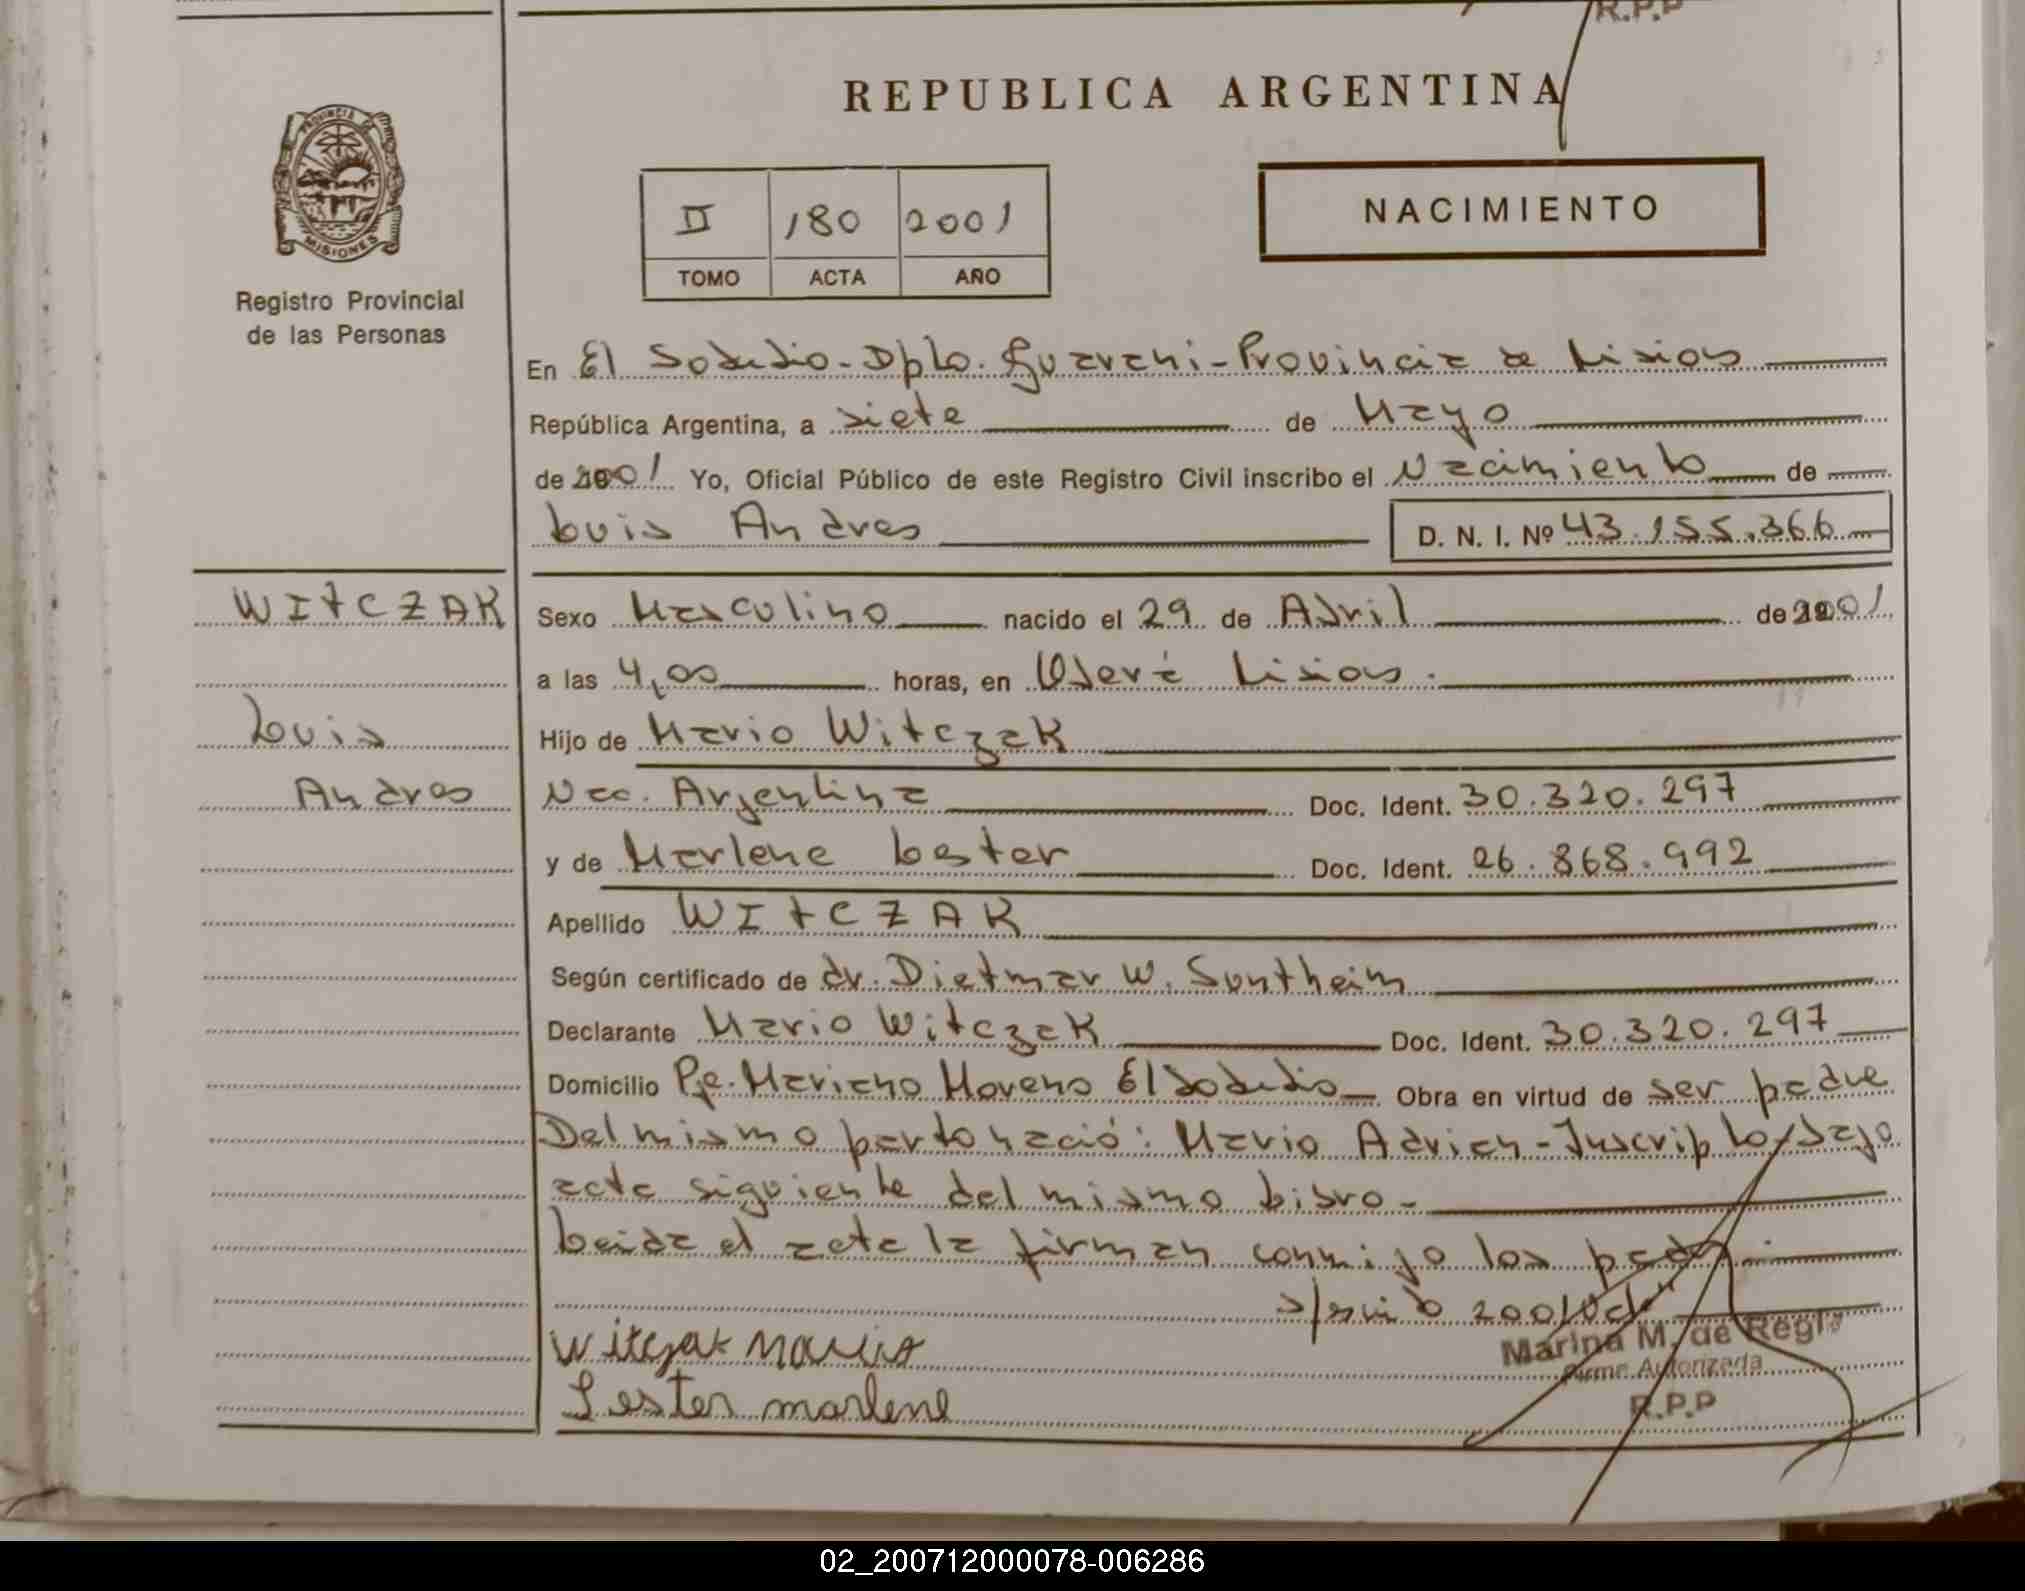 R.P.P
REPUBLICA ARGENTINA
PROVINCIA DE
MISIONES
Registro Provincial
de las Personas
II 180 2001
TOMO ACTA AÑO
NACIMIENTO
En El Soberbio - Dpto. Guarani - Provincia de Misiones
República Argentina, a siete de Mayo
de 2001 Yo, Oficial Público de este Registro Civil inscribo el Nacimiento de
Luis Andres D. N. I. Nº 43.155.366
WITCZAK
Luis
Andres
Sexo Masculino nacido el 29 de Abril de 2001
a las 4,00 horas, en Oberá Misiones.
Hijo de Mario Witczak
Nac. Argentina Doc. Ident. 30.320.297
y de Marlene Lester Doc. Ident. 26.868.992
Apellido WITCZAK
Según certificado de dr. Dietmar W. Sontheim
Declarante Mario Witczak Doc. Ident. 30.320.297
Domicilio Pje. Mariano Moreno El Soberbio Obra en virtud de ser padre
Del mismo parto nació: Mario Adrian - Inscripto bajo
acta siguiente del mismo Libro -
Leida el acta la firman conmigo los padres.
2001
Witczak Mario
Lester marlene
Marina M. de
Firma Autorizada
R.P.P
02_200712000078-006286